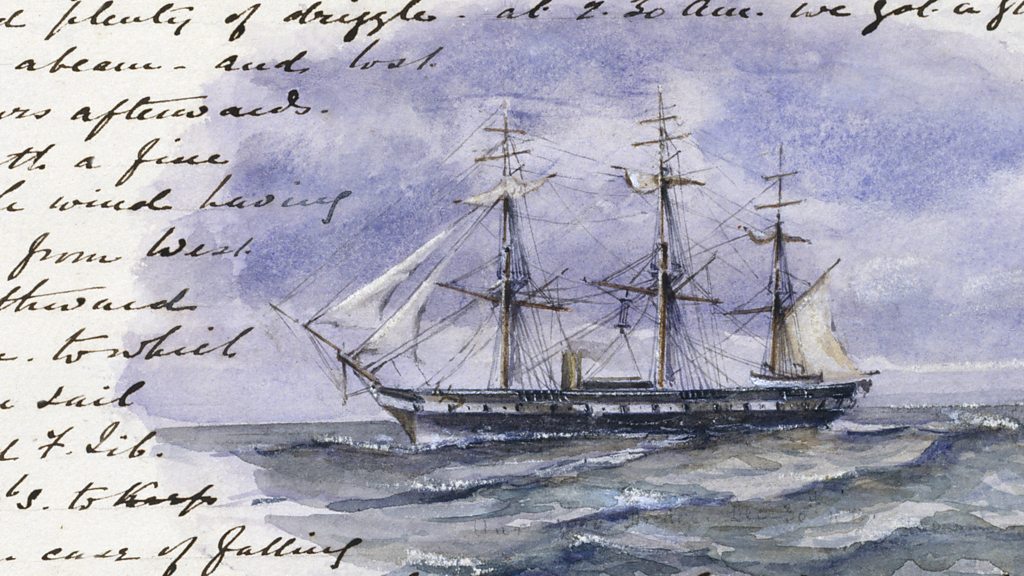 plenty of drizzle. at 2.30 am. we got a
abeam - and lost
afterwards.
th a fine
wind having
from West.
thward
to which
sail
F. Jib.
s. to keep
case of falling